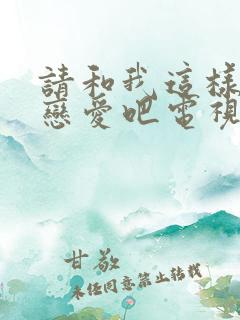 請和我這樣
戀愛吧電視
甘敬
未經同意禁止轉載